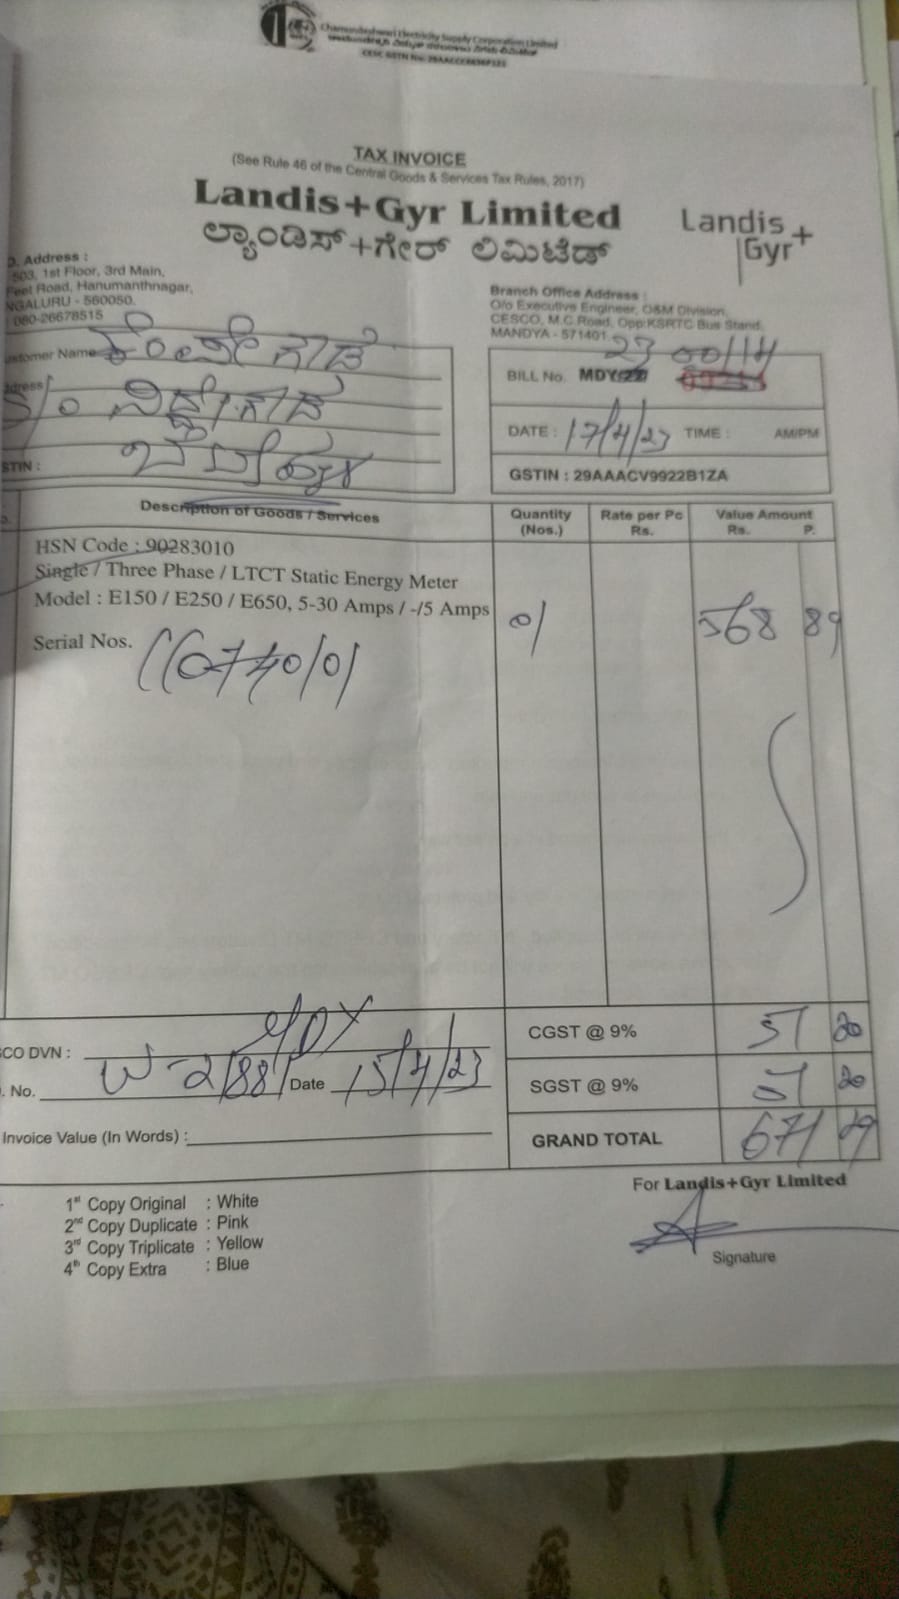 Chamundeshwari Electricity Supply Corporation Limited
TAX INVOICE
(See Rule 46 of the Central Goods & Services Tax Rules, 2017)
Landis+Gyr Limited
ಲ್ಯಾಂಡಿಸ್+ಗೇರ್ ಲಿಮಿಟೆಡ್
Landis
Gyr+
Address :
503, 1st Floor, 3rd Main,
Feet Road, Hanumanthnagar,
NGALURU - 560050.
080-26678515
Branch Office Address :
O/o Executive Engineer, O&M Division,
CESCO, M.C.Road, Opp:KSRTC Bus Stand,
MANDYA - 571401.
ustomer Name
ddress
S/o
STIN :
BILL No. MDY/22/
23 00114
DATE : 17/4/23 TIME : AM/PM
GSTIN : 29AAACV9922B1ZA
Description of Goods / Services
Quantity (Nos.)
Rate per Pc Rs.
Value Amount Rs. P.
HSN Code : 90283010
Single / Three Phase / LTCT Static Energy Meter
Model : E150 / E250 / E650, 5-30 Amps / -/5 Amps
01 568 89
Serial Nos.
CGST @ 9% 51 20
SCO DVN :
. No. W-2188 Date 15/4/23
SGST @ 9% 51 20
Invoice Value (In Words) :
GRAND TOTAL 671 29
For Landis+Gyr Limited
Signature
1st Copy Original : White
2nd Copy Duplicate : Pink
3rd Copy Triplicate : Yellow
4th Copy Extra : Blue